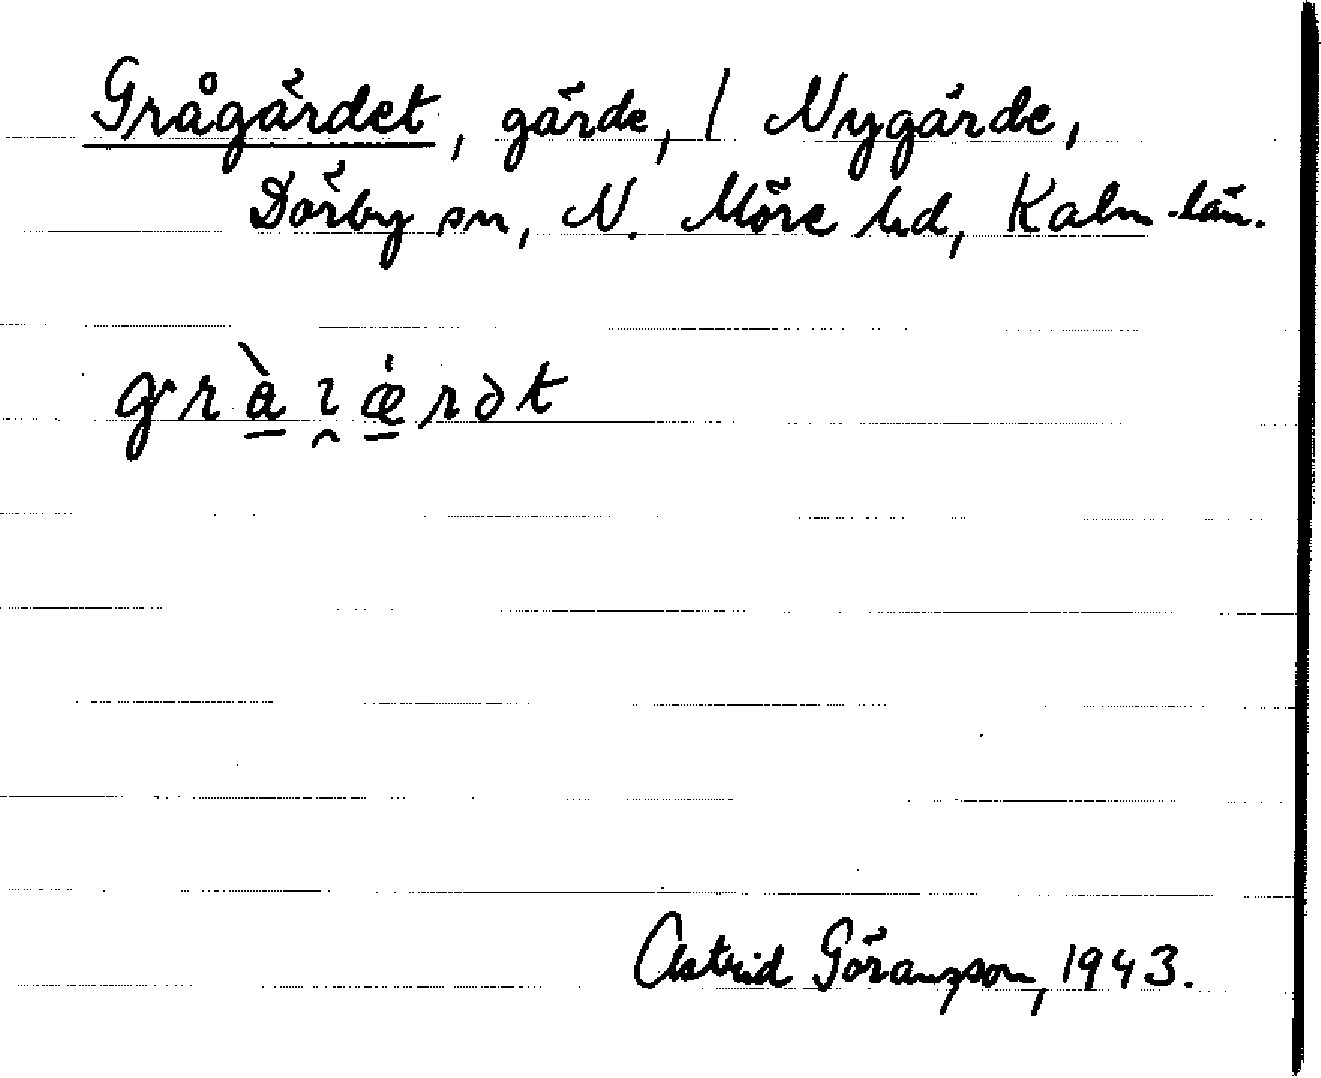 Grågärdet, gärde, / Nygärde,
Dörby sn, N. Möre hd, Kalm. län.
Astrid Göransson, 1943.